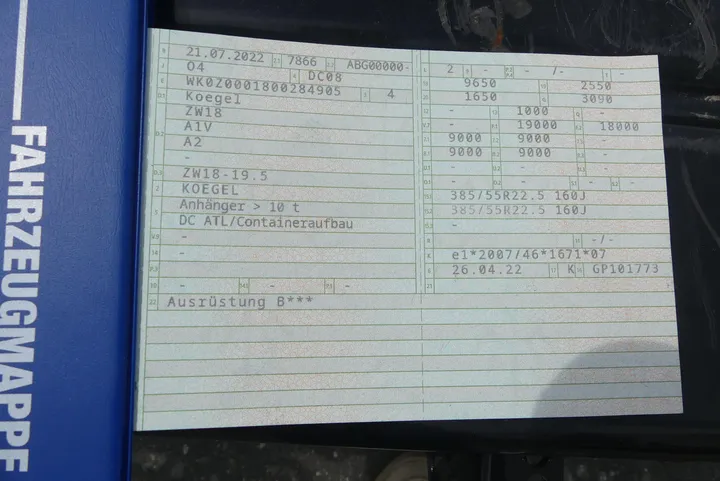 FAHRZEUGMAPPE
21.07.2022 7866 ABG00000-
04 DC08
WK0Z0001800284905 4
Koegel
ZW18
A1V
A2
-
ZW18-19.5
KOEGEL
Anhänger > 10 t
DC ATL/Containeraufbau
-
-
- - -
Ausrüstung B***
2 - - /- -
9650 2550
1650 3090
- 1000 -
- 19000 18000
9000 - 9000 -
9000 9000
- - -
- - - -
385/55R22.5 160J
385/55R22.5 160J
-
-/-
e1*2007/46*1671*07
26.04.22 K GP101773